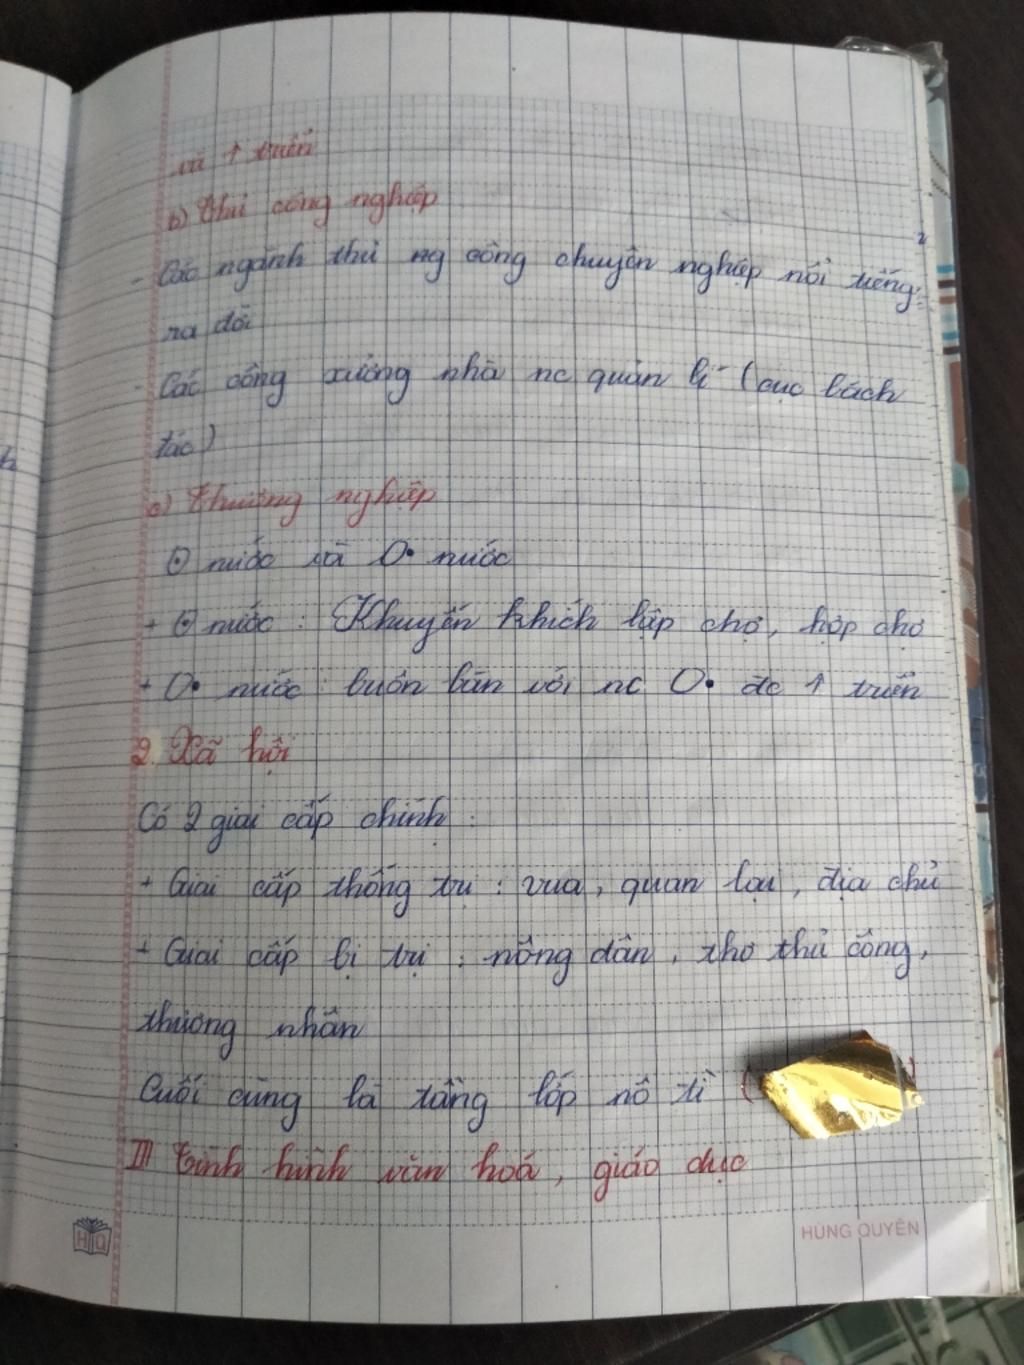 và ↑ triển
b) Thủ công nghiệp
- Các ngành thủ ng công chuyên nghiệp nổi tiếng
ra đời
- Các công xưởng nhà nc quản lí (cục bách
tác)
c) Thương nghiệp
⊙ nước và O• nước
+ ⊙ nước : Khuyến khích lập chợ, họp chợ
+ O• nước : buôn bán với nc O• đc ↑ triển
2. Xã hội
Có 2 giai cấp chính :
+ Giai cấp thống trị : vua, quan lại, địa chủ
+ Giai cấp bị trị : nông dân, thợ thủ công,
thương nhân
Cuối cùng là tầng lớp nô tì (
III Tình hình văn hoá, giáo dục
HQ
HÙNG QUYÊN